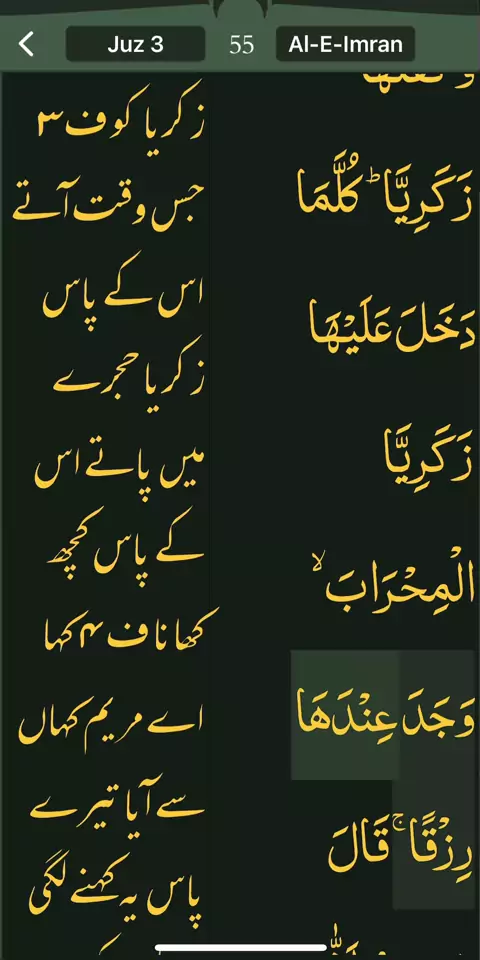 Juz 3
55
Al-E-Imran
زَكَرِيَّا ؕ كُلَّمَا
دَخَلَ عَلَيْهَا
زَكَرِيَّا
الْمِحْرَابَ ۙ
وَجَدَ عِنْدَهَا
رِزْقًا ۚ قَالَ
زکریا کو ف۳
جس وقت آتے
اس کے پاس
زکریا حجرے
میں پاتے اس
کے پاس کچھ
کھانا ف۴ کہا
اے مریم کہاں
سے آیا تیرے
پاس یہ کہنے لگی